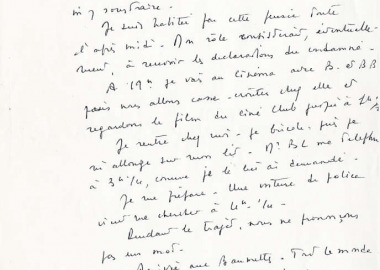 m'y soustraire.
Je suis habitée par cette pensée toute
l'après midi. Mon rôle consisterait, éventuelle-
ment, à recevoir les déclarations du condamné.
A 19h je vais au cinéma avec B. et BB
puis nous allons casse-croûter chez elle et
regardons le film du ciné club jusqu'à 1h
Je rentre chez moi - je bricole - puis je
m'allonge sur mon lit. Mr BL me téléphone
à 3h 1/4, comme je le lui ai demandé.
Je me prépare - Une voiture de police
vient me chercher à 4h 1/4.
Pendant le trajet, nous ne prononçons
pas un mot.
Arrivée aux Baumettes. Tout le monde